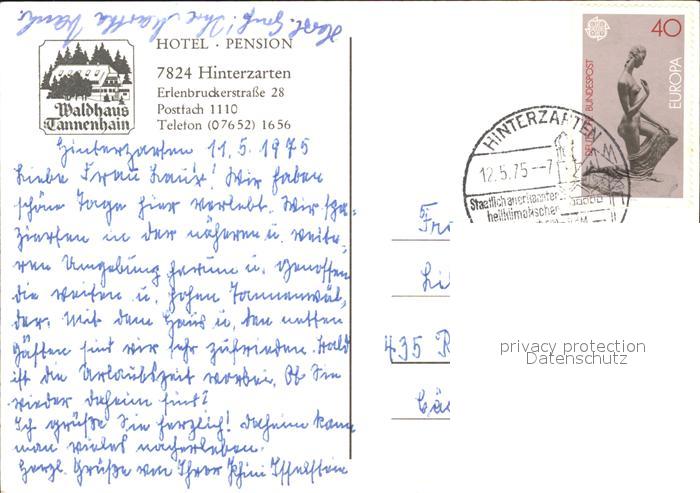 Herzl. Grüß! Ihre Martha
HOTEL · PENSION
7824 Hinterzarten
Erlenbruckerstraße 28
Postfach 1110
Telefon (07652) 1656
Waldhaus
Tannenhain
40
DEUTSCHE BUNDESPOST
EUROPA
HINTERZARTEN
12.5.75--7
Staatlich anerkannter
heilklimatischer
Hinterzarten 11.5.1975
Liebe Frau Lanz! Wir haben
schöne Tage hier verlebt. Wir spa-
zierten in der näheren u. weite-
ren Umgebung herum u. genossen
die weiten u. hohen Tannenwäl-
der. Mit dem Haus u. den netten
Gästen sind wir sehr zufrieden. Bald
ist die Urlaubszeit vorbei. Ob Sie
wieder daheim sind?
Ich grüße Sie herzlich! Daheim kann
man vieles nacherleben.
Herzl. Grüße von Ihrer
435 R
privacy protection
Datenschutz